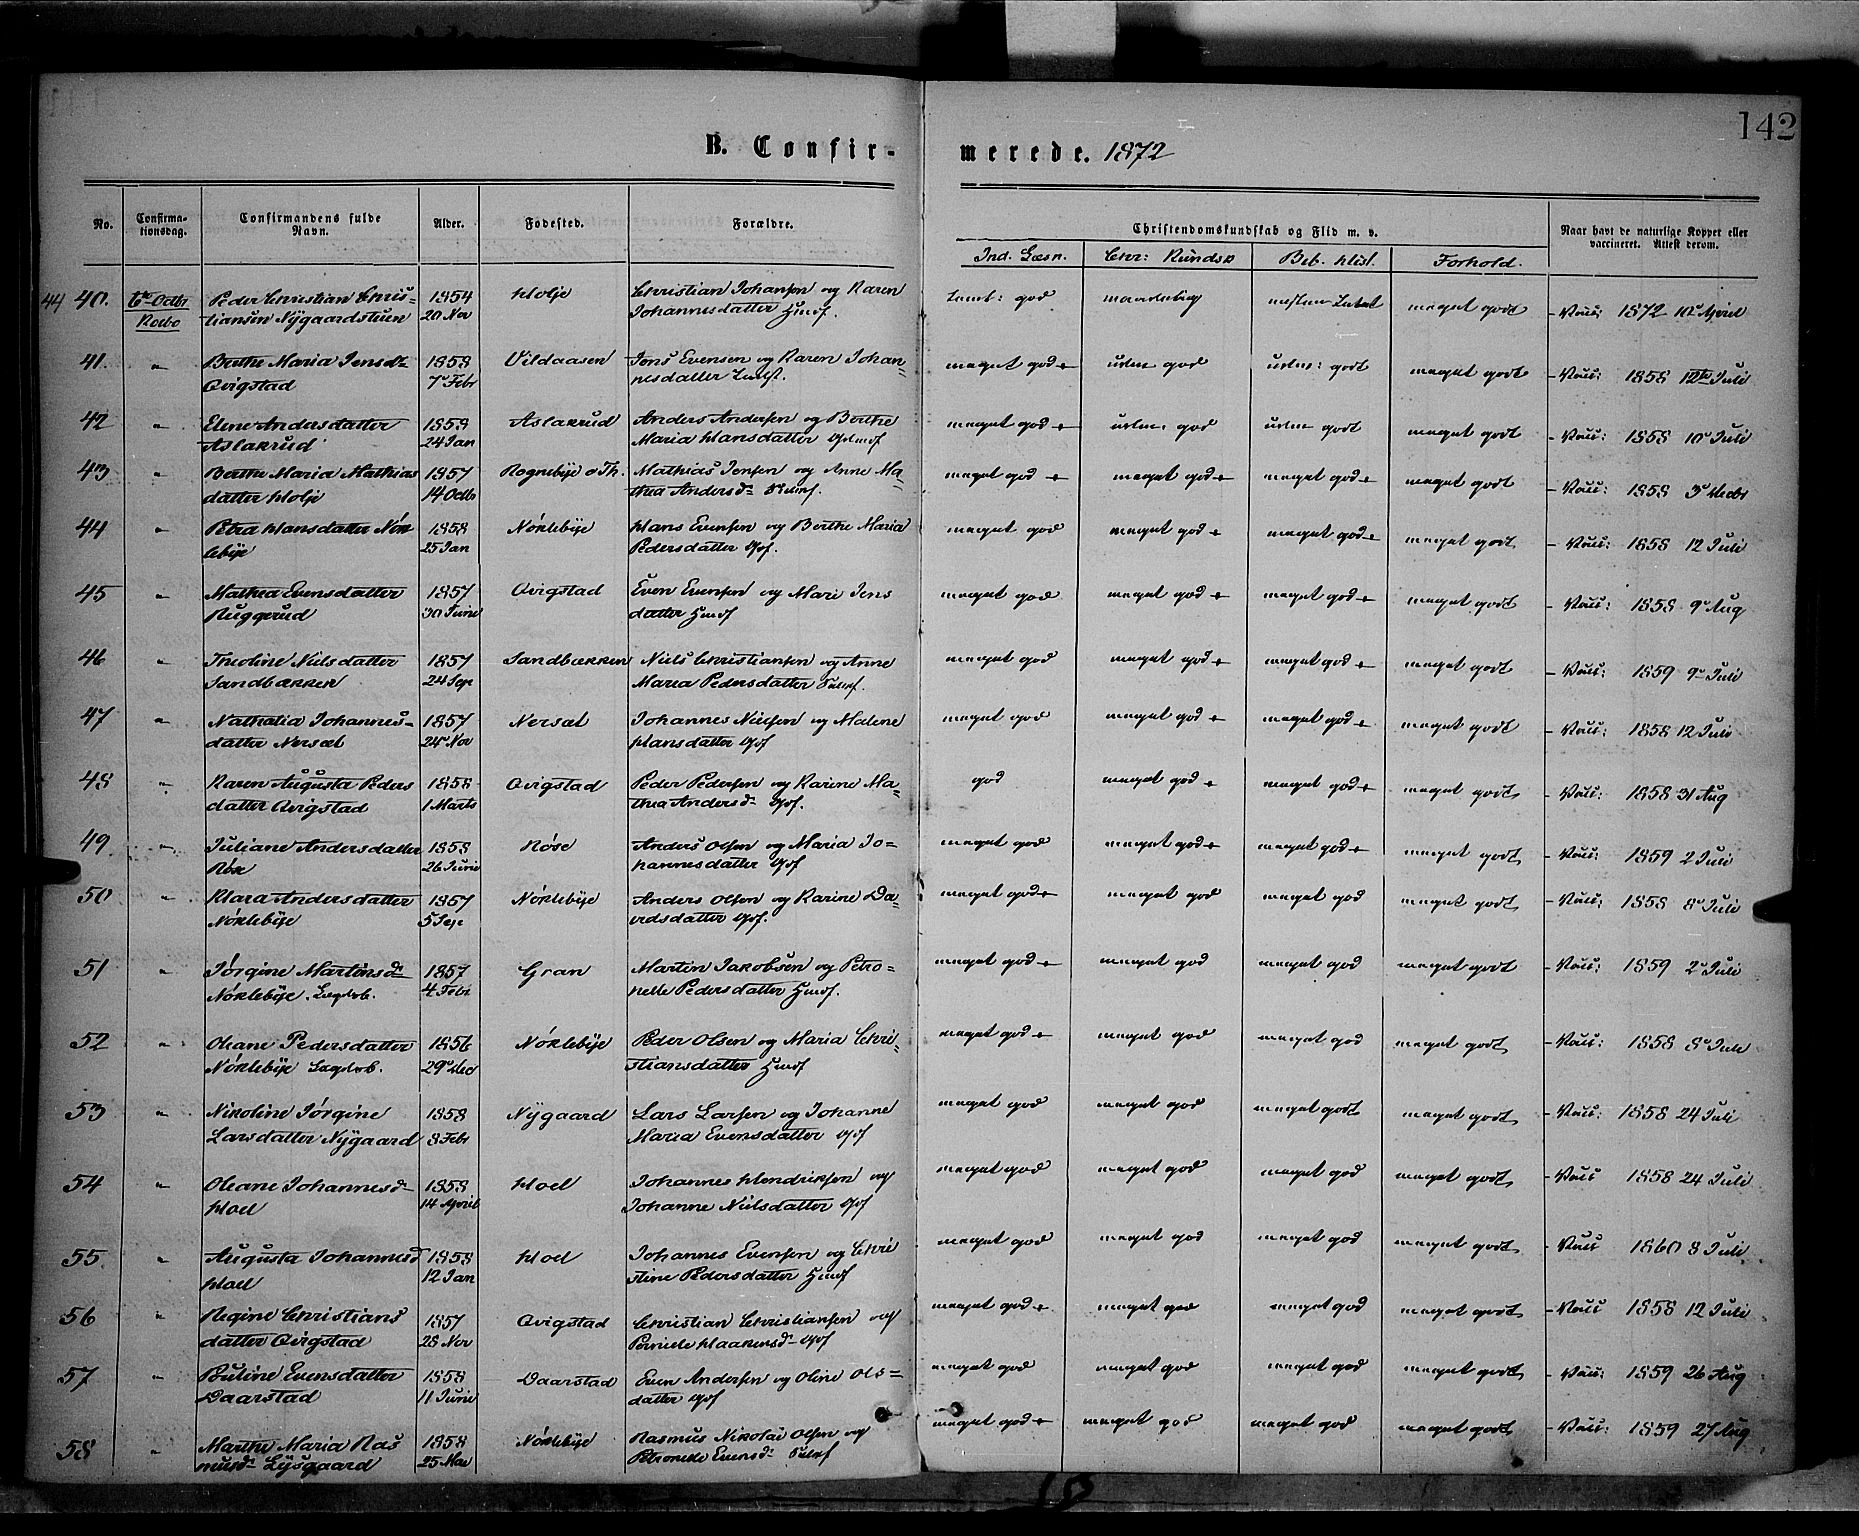 142
B. Confirmerede. 1872
No. Confirmationsdag. Confirmandens fulde Navn. Alder. Fødested. Forældre. Christendomskundskab og Flid m. v. Naar havt de naturlige Kopper eller vaccineret. Attest derom.
Ind. Læsn. Chr: Kundsk Beb. Hist. Forhold.
44 40. 6te Octbr Peder Christian Chris- 1854 Holje Christian Johansen og Karen god maadelig meget godt Vacc: 1872 10 April
Kolbo tiansen Nygaardstuen 20 Nov Johannesdatter Husf.
41. " Berthe Maria Jensd: 1858 Vildaasen Jens Evensen og Karen Johan- meget god + god godt meget godt - Vacc: 1858 12te Juli
Qvigstad 7 Febr nesdatter
42 " Eline Andersdatter 1858 Aslakrud Anders Andersen og Berthe meget god + god godt meget godt - Vacc: 1858 10 Juli
Aslakrud 24 Jan Maria Hansdatter
43 " Berthe Maria Mathias 1857 Rognebye o Th. Mathias Jensen og Anne Ma- meget god + meget god + meget god + meget godt - Vacc: 1858 3 Decbr
datter Holje 14 Octb thea Andersd:
44 " Petra Hansdatter Nøk 1858 Nøklebye Hans Evensen og Berthe Maria meget god meget god + meget god + meget godt - Vacc: 1858 12 Juli
lebye 25 Jan Pedersdatter Gf.
45 " Mathea Evensdatter 1857 Qvigstad Even Evensen og Mari Jens meget god meget god + meget god + meget godt - Vacc: 1858 9 Aug
Ruggerud 30 Juni datter Husf
46 " Theoline Nielsdatter 1857 Sandbækken Niels Christiansen og Anne meget god meget god + meget god + meget godt - Vacc: 1859 9 Juli
Sandbækken 24 Sep Maria Pedersdatter
47 " Nathalia Johannes- 1857 Nersæt Johannes Nielsen og Malene meget god meget god + meget god + meget godt - Vacc: 1858 12 Juli
datter Nersæt 24 Nov Hansdatter Gf
48 " Karen Augusta Peders 1858 Qvigstad Peder Pedersen og Karine Ma- god meget god + meget god + meget godt - Vacc: 1858 31 Aug
datter Qvigstad 1 Marts thea Andersd: Gf.
49 " Juliane Andersdatter 1858 Røse Anders Olsen og Maria Jo- meget god meget god + meget god + meget godt - Vacc: 1859 2 Juli
Røse 26 Juni hannesdatter Gf
50 " Klara Andersdatter 1857 Nøklebye Anders Olsen og Karine Da- meget god + meget god meget god meget godt - Vacc: 1858 8 Juli
Nøklebye 5 Sep vidsdatter Gf.
51 " Jørgine Martinsd: 1857 Gran Martin Jakobsen og Petro- meget god + meget god meget god meget godt - Vacc: 1859 2 Juli
Nøklebye. 4 Febr nelle Pedersdatter Husf.
52 " Oleane Pedersdatter 1856 Nøklebye Peder Olsen og Maria Chri- meget god + meget god meget god meget godt - Vacc: 1858 8 Juli
Nøklebye 29 Dec stiansdatter Husf
53 " Nikoline Jørgine 1858 Nygaard Lars Larsen og Johanne meget god meget god meget godt meget godt - Vacc: 1858 24 Juli
Larsdatter Nygaard 8 Febr Maria Evensdatter Gf
54 " Oleane Johannesd: 1858 Hoel Johannes Hendriksen og meget god meget god meget god meget godt - Vacc 1858 24 Juli
Hoel 14 April Johanne Nielsdatter Gf
55. " Augusta Johannesd 1858 Hoel Johannes Evensen og Chri meget god meget god meget god meget godt - Vacc 1860 8 Juli
Hoel 12 Jan stine Pedersdatter Husf
56 " Regine Christians 1857 Qvigstad Christian Christiansen og meget god + meget god meget god meget godt - Vacc 1858 12 Juli
datter Qvigstad 28 Nov Pernele Haakensd: Gf
57 " Buline Evensdatter 1858 Daarstad Even Andersen og Oline Ols- meget god meget god meget god meget godt - Vacc: 1859 26 Aug
Daarstad 11 Juni datter Gf
58 " Marthe Maria Ras 1858 Nøklebye Rasmus Nikolai Olsen og meget god + meget god meget god meget godt - Vacc: 1859 27 Aug
musd: Lysgaard 25 Mai Petronelle Evensd: